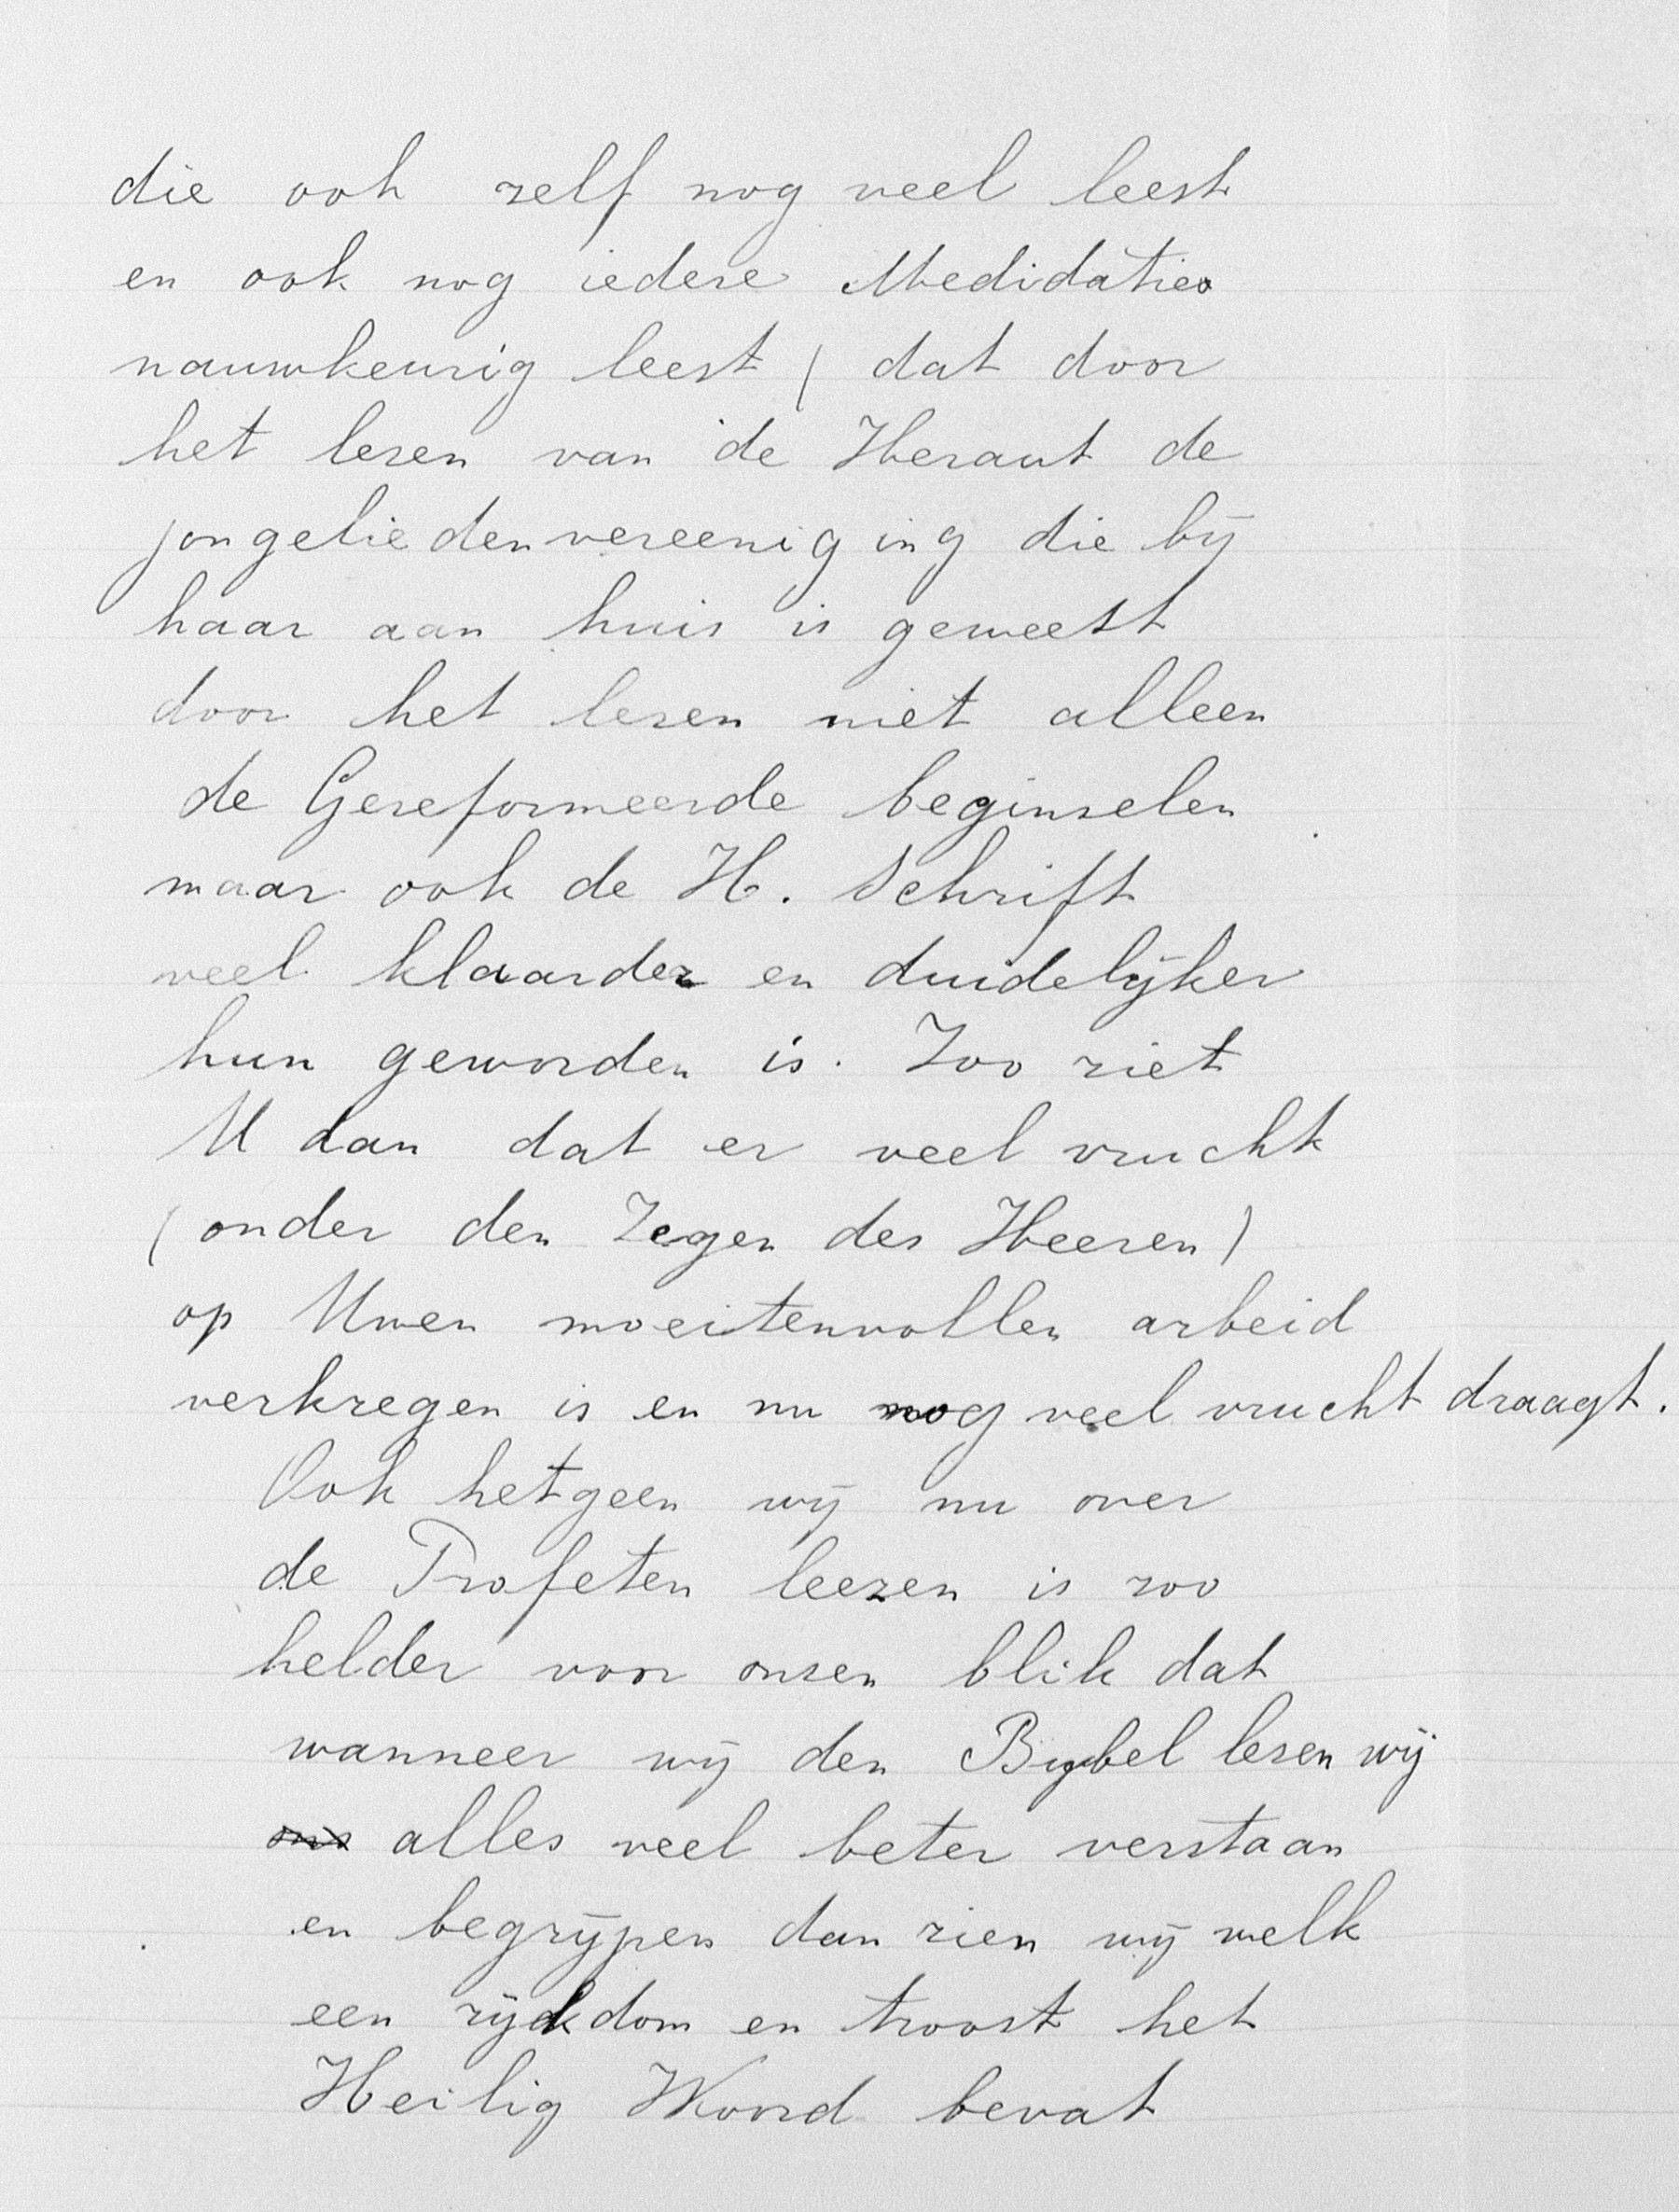 die ook zelf nog veel leest
en ook nog iedere Medidaties
nauwkeurig leest ( dat door
het lezen van de Heraut de
jongeliedenvereeniging die bij
haar aan huis is geweest
door het lezen niet alleen
de Gereformeerde beginselen
maar ook de H. Schrift
veel klaarder en duidelijker
hun geworden is. Zoo ziet
U dan dat er veel vrucht
(onder den Zegen des Heeren)
op Uwen moeitenvollen arbeid
verkregen is en nu nog veel vrucht draagt.
Ook hetgeen wij nu over
de Profeten leezen is zoo
helder voor onzen blik dat
wanneer wij den Bijbel lezen wij
ons alles veel beter verstaan
en begrijpen dan zien wij welk
een rijkdom en troost het
Heilig Woord bevat